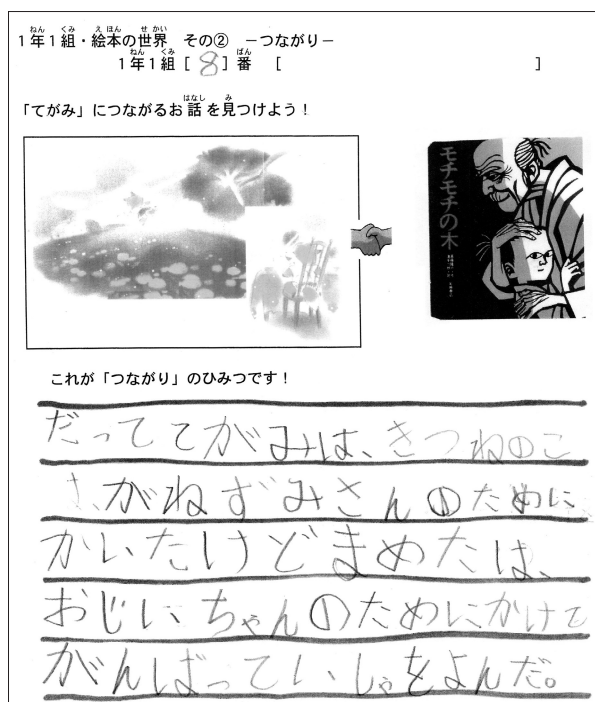 1年1組・絵本の世界 その② －つながり－
1年1組 [ 8 ] 番 [ ]
「てがみ」につながるお話を見つけよう！
モチモチの木
これが「つながり」のひみつです！
だっててがみは、きつねのこ
が、ねずみさんのために
かいたけどまめたは、
おじいちゃんのためにかけて
がんばっていしゃをよんだ。